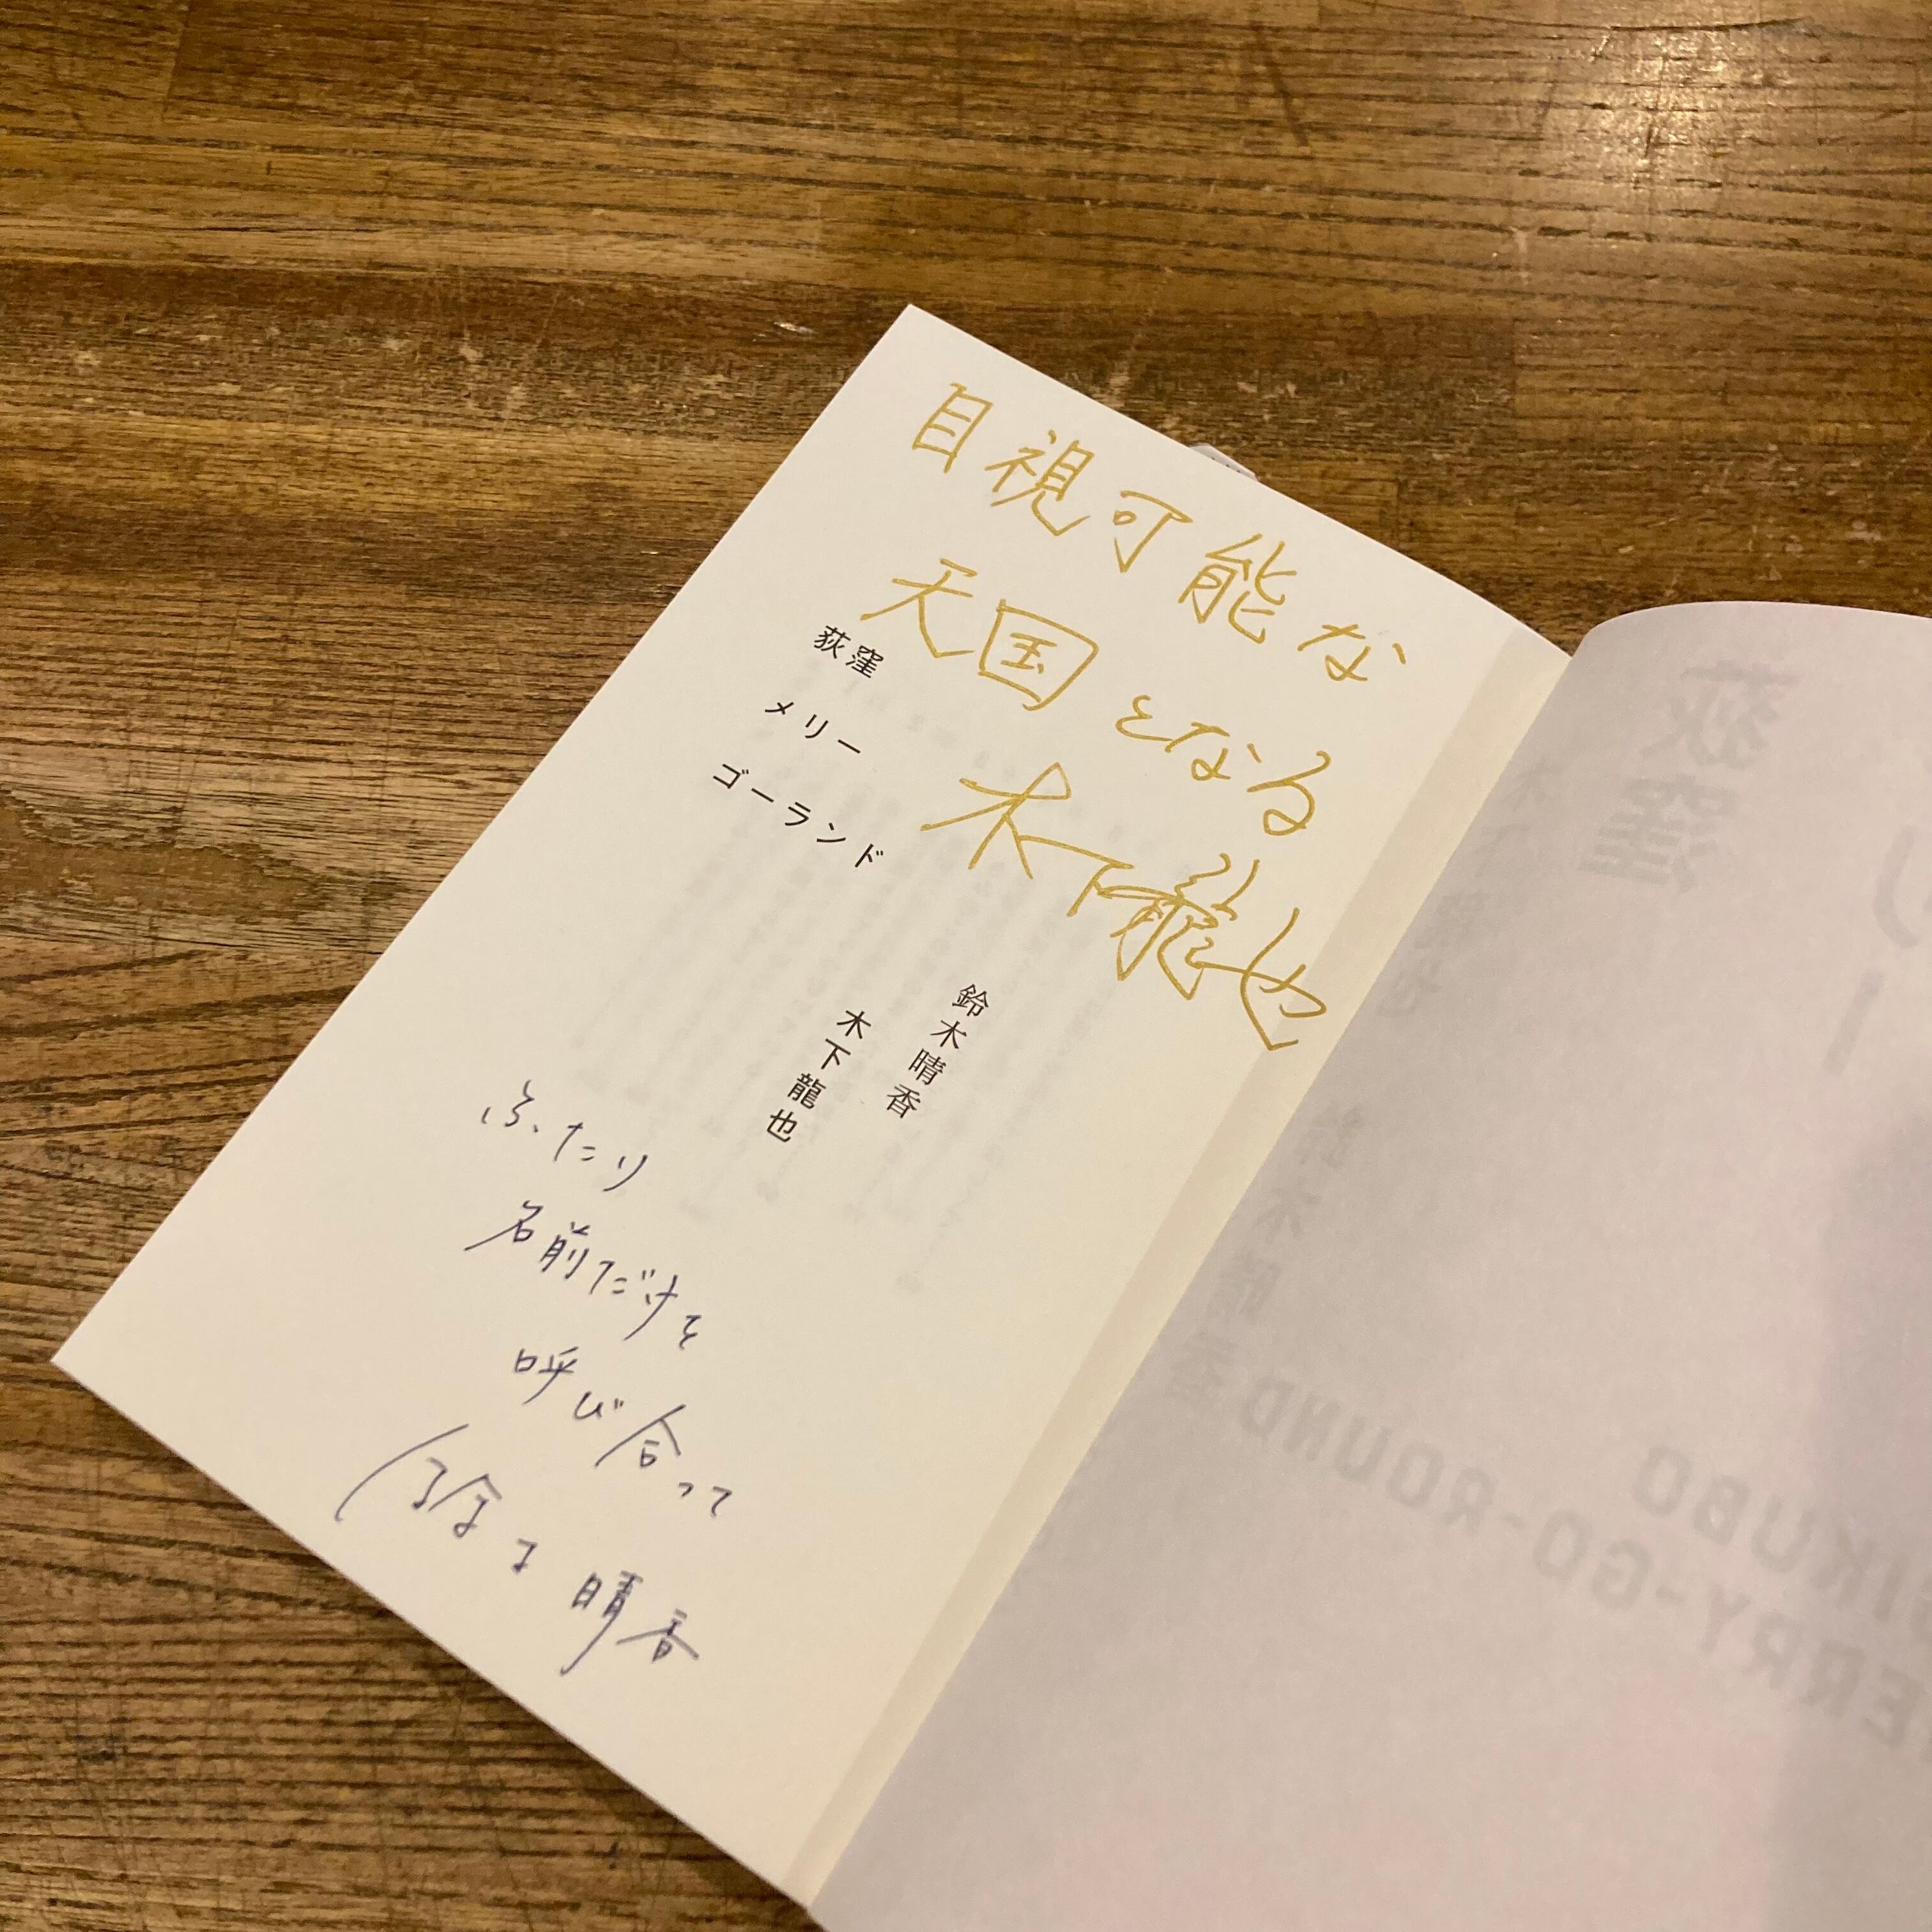 目視可能な
天国となる
木下龍也
荻窪
メリー
ゴーランド
鈴木晴香
木下龍也
ふたり
名前だけを
呼び合って
鈴木晴香
荻窪
リー
鈴木晴香
IKUBO
ERRY-GO-ROUND